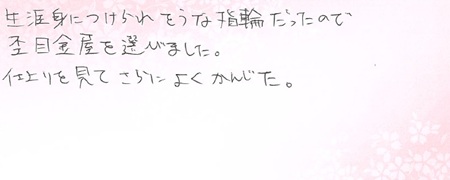 生涯身につけられそうな指輪だったので
杢目金屋を選びました。
仕上りを見てさらによくかんじた。